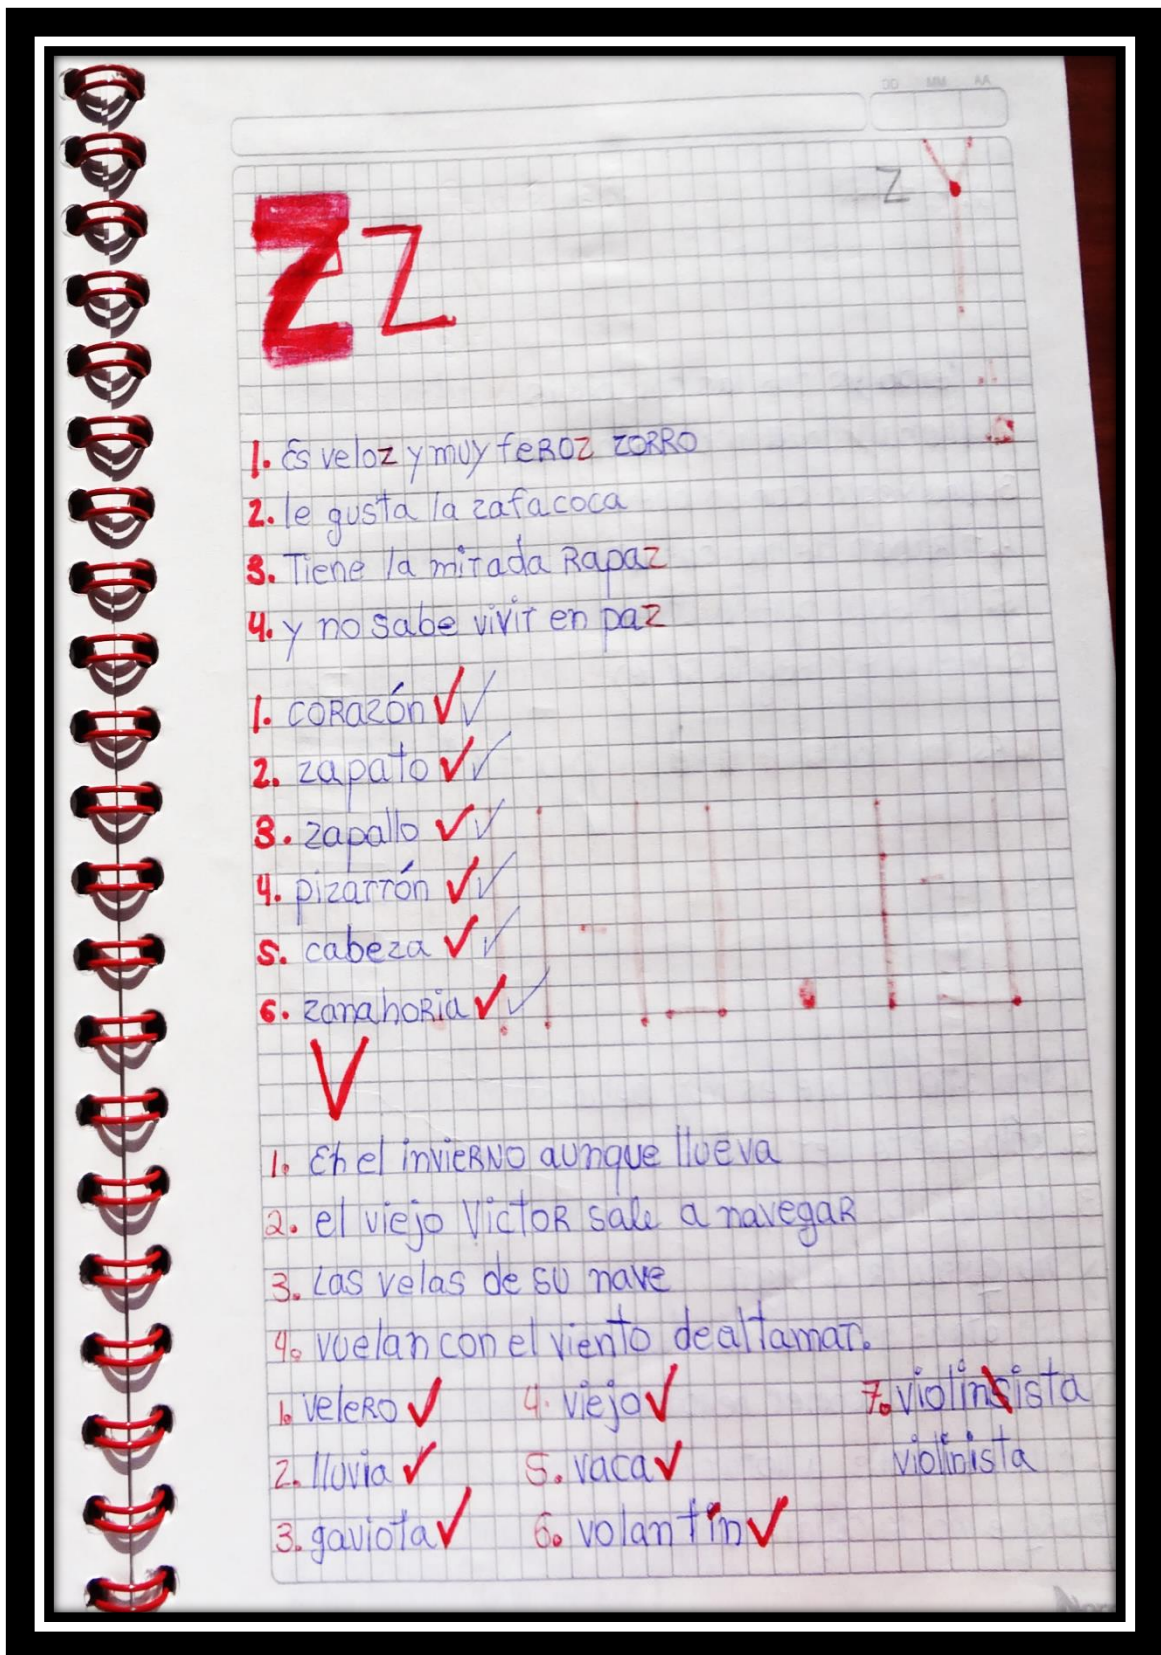 Z Z
Z
1. Es veloz y muy feROZ ZORRO
2. le gusta la zafacoca
3. Tiene la mirada Rapaz
4. y no sabe vivir en paz
1. CORazón ✓✓
2. zapato ✓✓
3. zapallo ✓✓
4. pizarrón ✓✓
5. cabeza ✓✓
6. zanahoRia ✓✓
V
1. En el invieRNO aunque llueva
2. el viejo VictoR sale a navegaR
3. Las velas de su nave
4. vuelan con el viento de altamar.
1. veleRO ✓ 4. viejo ✓ 7. violinsista
2. lluvia ✓ 5. vaca ✓ violinista
3. gaviota ✓ 6. volantín ✓